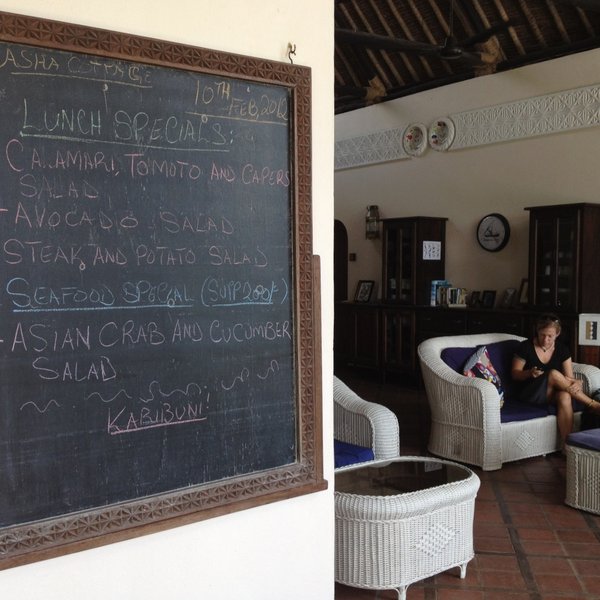 ASHA COTTAGE
10TH FEB 2012
LUNCH SPECIALS:
CALAMARI, TOMOTO AND CAPERS
SALAD
- AVOCADO SALAD
STEAK AND POTATO SALAD
SEAFOOD SPECIAL (SUPP 200/-)
- ASIAN CRAB AND CUCUMBER
SALAD
KARIBUNI!